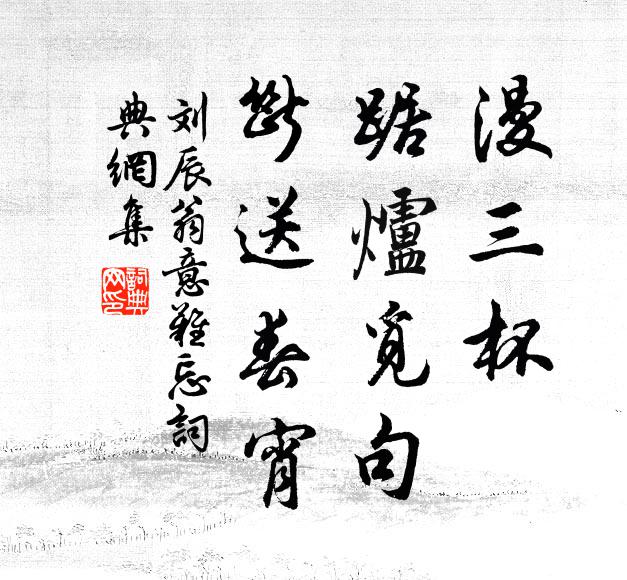 漫三杯
踞爐覓句
斷送春宵
刘辰翁意難忘詞
典網集
詞典
网印